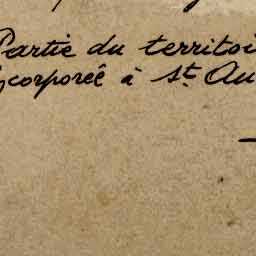 Partie du territoi
incorporée à St. Au